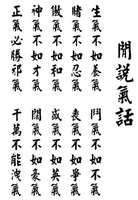 閒說氣話
生氣不如養氣
賭氣不如忍氣
傲氣不如和氣
神氣不如才氣
正氣必勝邪氣
鬥氣不如氣
喪氣不如爭氣
盛氣不如英氣
闊氣不如豪氣
千萬不能洩氣